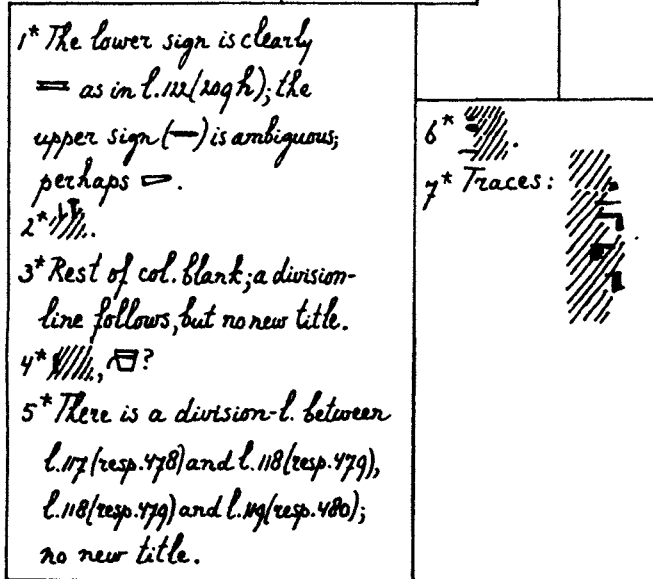 1* The lower sign is clearly
as in l.122(209h); the
upper sign (—) is ambiguous;
perhaps
2*
3* Rest of col. blank; a division-
line follows, but no new title.
4* , ?
5* There is a division-l. between
l.117(resp.478) and l.118(resp.479),
l.118(resp.479) and l.119(resp.480);
no new title.
6*
7* Traces: